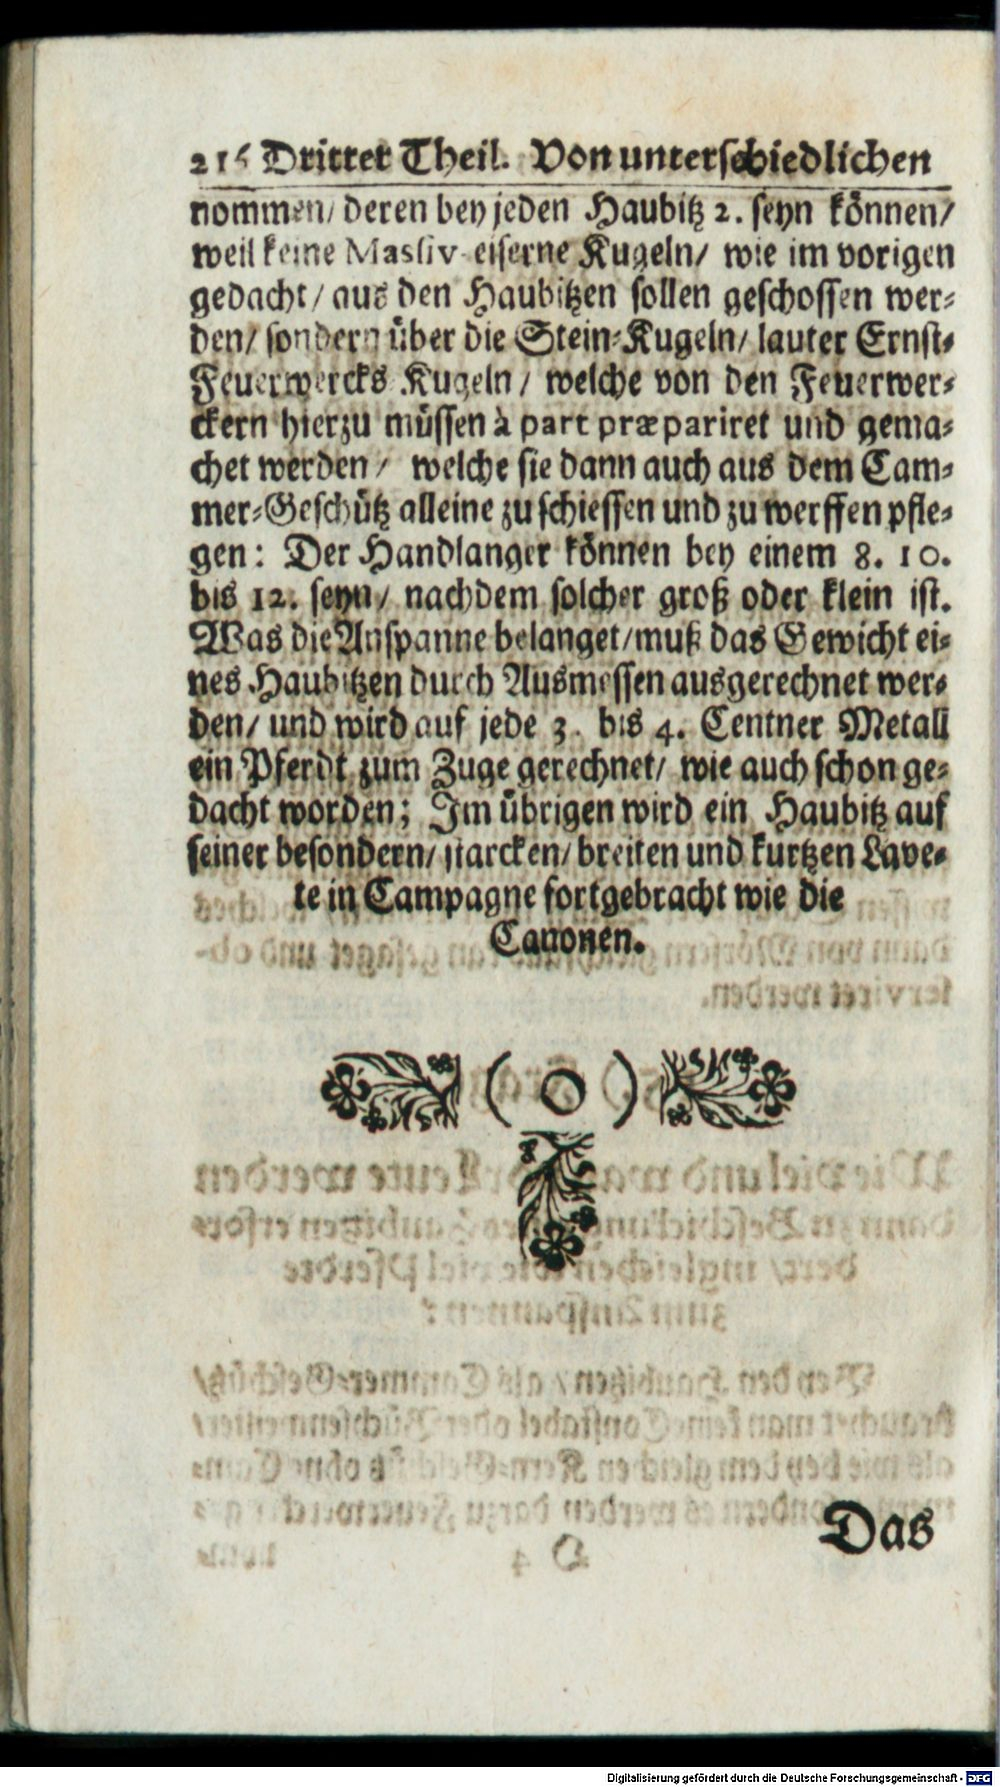 216 Dritter Theil. Von unterschiedlichen
nommen/ deren bey jeden Haubitz 2. seyn können/
weil keine Massiv-eiserne Kugeln/ wie im vorigen
gedacht/ aus den Haubitzen sollen geschossen wer-
den/ sondern über die Stein-Kugeln/ lauter Ernst-
Feuerwercks Kugeln/ welche von den Feuerwer-
ckern hierzu müssen à part præpariret und gema-
chet werden/ welche sie dann auch aus dem Cam-
mer-Geschütz alleine zu schiessen und zu werffen pfle-
gen: Der Handlanger können bey einem 8. 10.
bis 12. seyn/ nachdem solcher groß oder klein ist.
Was die Anspanne belanget/ muß das Gewicht ei-
nes Haubitzen durch Ausmessen ausgerechnet wer-
den/ und wird auf jede 3. bis 4. Centner Metall
ein Pferdt zum Zuge gerechnet/ wie auch schon ge-
dacht worden; Im übrigen wird ein Haubitz auf
seiner besondern/ starcken/ breiten und kurtzen Lave-
te in Campagne fortgebracht wie die
Canonen.
( O )
Das
Digitalisierung gefördert durch die Deutsche Forschungsgemeinschaft - DFG